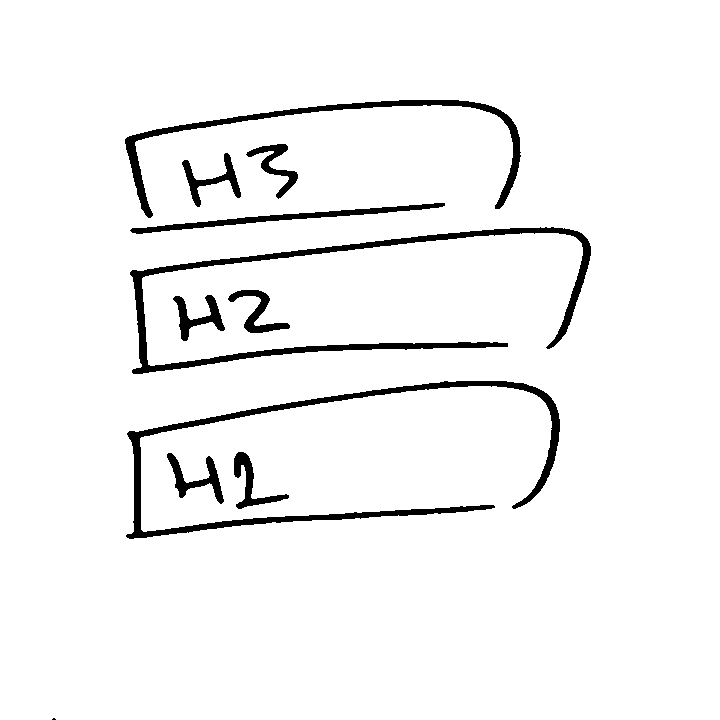 H3
H2
H1